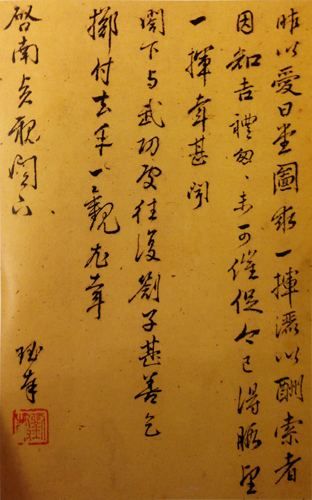 昨以愛日堂圖求一揮灑以酬索者
因知吉禮匆〻未可催促今已得暇望
一揮幸甚聞
閣下与武功處往復劄子甚善乞
擲付去手一觀尤幸
啓南貞覯閣下
珏奉